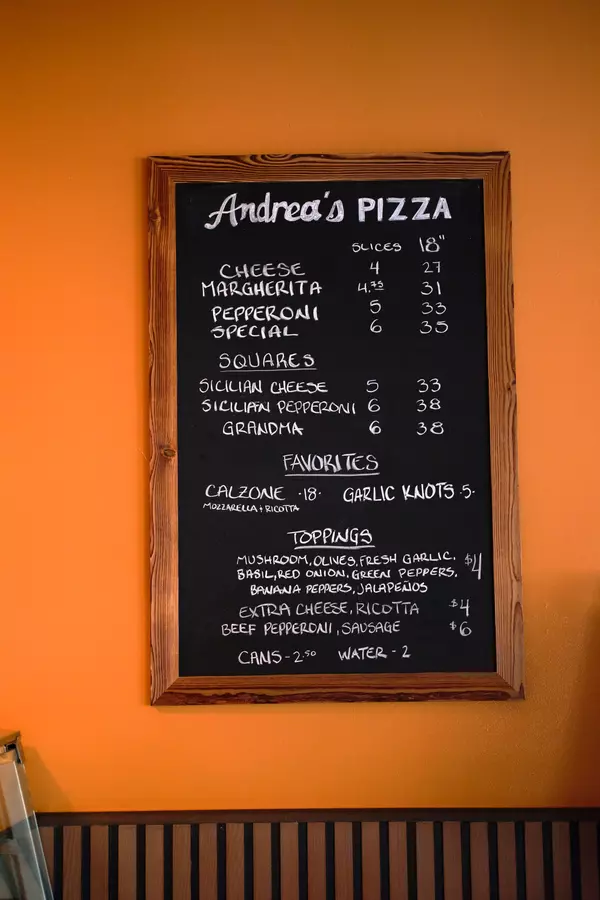 Andrea's PIZZA
SLICES 18"
CHEESE 4 27
MARGHERITA 4.75 31
PEPPERONI 5 33
SPECIAL 6 35
SQUARES
SICILIAN CHEESE 5 33
SICILIAN PEPPERONI 6 38
GRANDMA 6 38
FAVORITES
CALZONE ·18· GARLIC KNOTS ·5·
MOZZARELLA + RICOTTA
TOPPINGS
MUSHROOM, OLIVES, FRESH GARLIC, $4
BASIL, RED ONION, GREEN PEPPERS,
BANANA PEPPERS, JALAPEÑOS
EXTRA CHEESE, RICOTTA $4
BEEF PEPPERONI, SAUSAGE $6
CANS - 2.50 WATER - 2